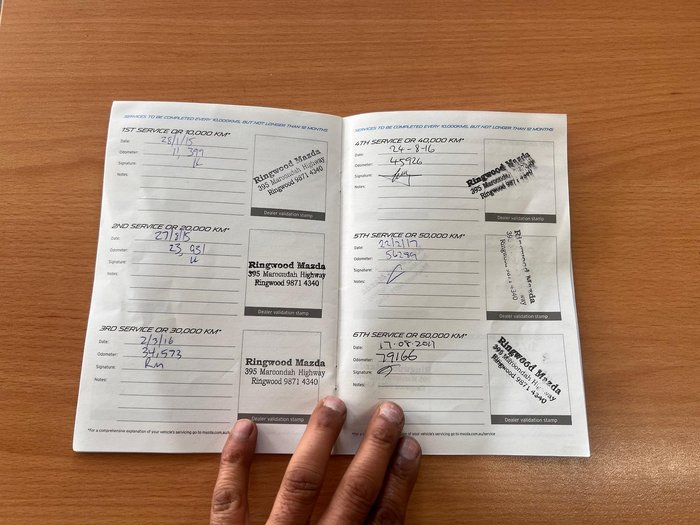 SERVICES TO BE COMPLETED EVERY 10,000KMS, BUT NOT LONGER THAN 12 MONTHS
1ST SERVICE OR 10,000 KM*
Date: 28/1/15
Odometer: 11,399
Signature:
Notes:
Ringwood Mazda
395 Maroondah Highway
Ringwood 9871 4340
Dealer validation stamp
2ND SERVICE OR 20,000 KM*
Date: 27/8/15
Odometer: 23,931
Signature:
Notes:
Ringwood Mazda
395 Maroondah Highway
Ringwood 9871 4340
Dealer validation stamp
3RD SERVICE OR 30,000 KM*
Date: 2/3/16
Odometer: 34,573
Signature:
Notes:
Ringwood Mazda
395 Maroondah Highway
Ringwood 9871 4340
Dealer validation stamp
*For a comprehensive explanation of your vehicle's servicing go to mazda.com.au/
SERVICES TO BE COMPLETED EVERY 10,000KMS, BUT NOT LONGER THAN 12 MONTHS
4TH SERVICE OR 40,000 KM*
Date: 24-8-16
Odometer: 45926
Signature:
Notes:
Ringwood Mazda
395 Maroondah
Ringwood 9871
Dealer validation stamp
5TH SERVICE OR 50,000 KM*
Date: 22/2/17
Odometer: 56289
Signature:
Notes:
4340
Dealer validation stamp
6TH SERVICE OR 60,000 KM*
Date: 17.08.2017
Odometer: 79166
Signature:
Notes:
Ringwood Mazda
395 Maroondah
Ringwood 9871 4340
Dealer validation stamp
*For a comprehensive explanation of your vehicle's servicing go to mazda.com.au/service